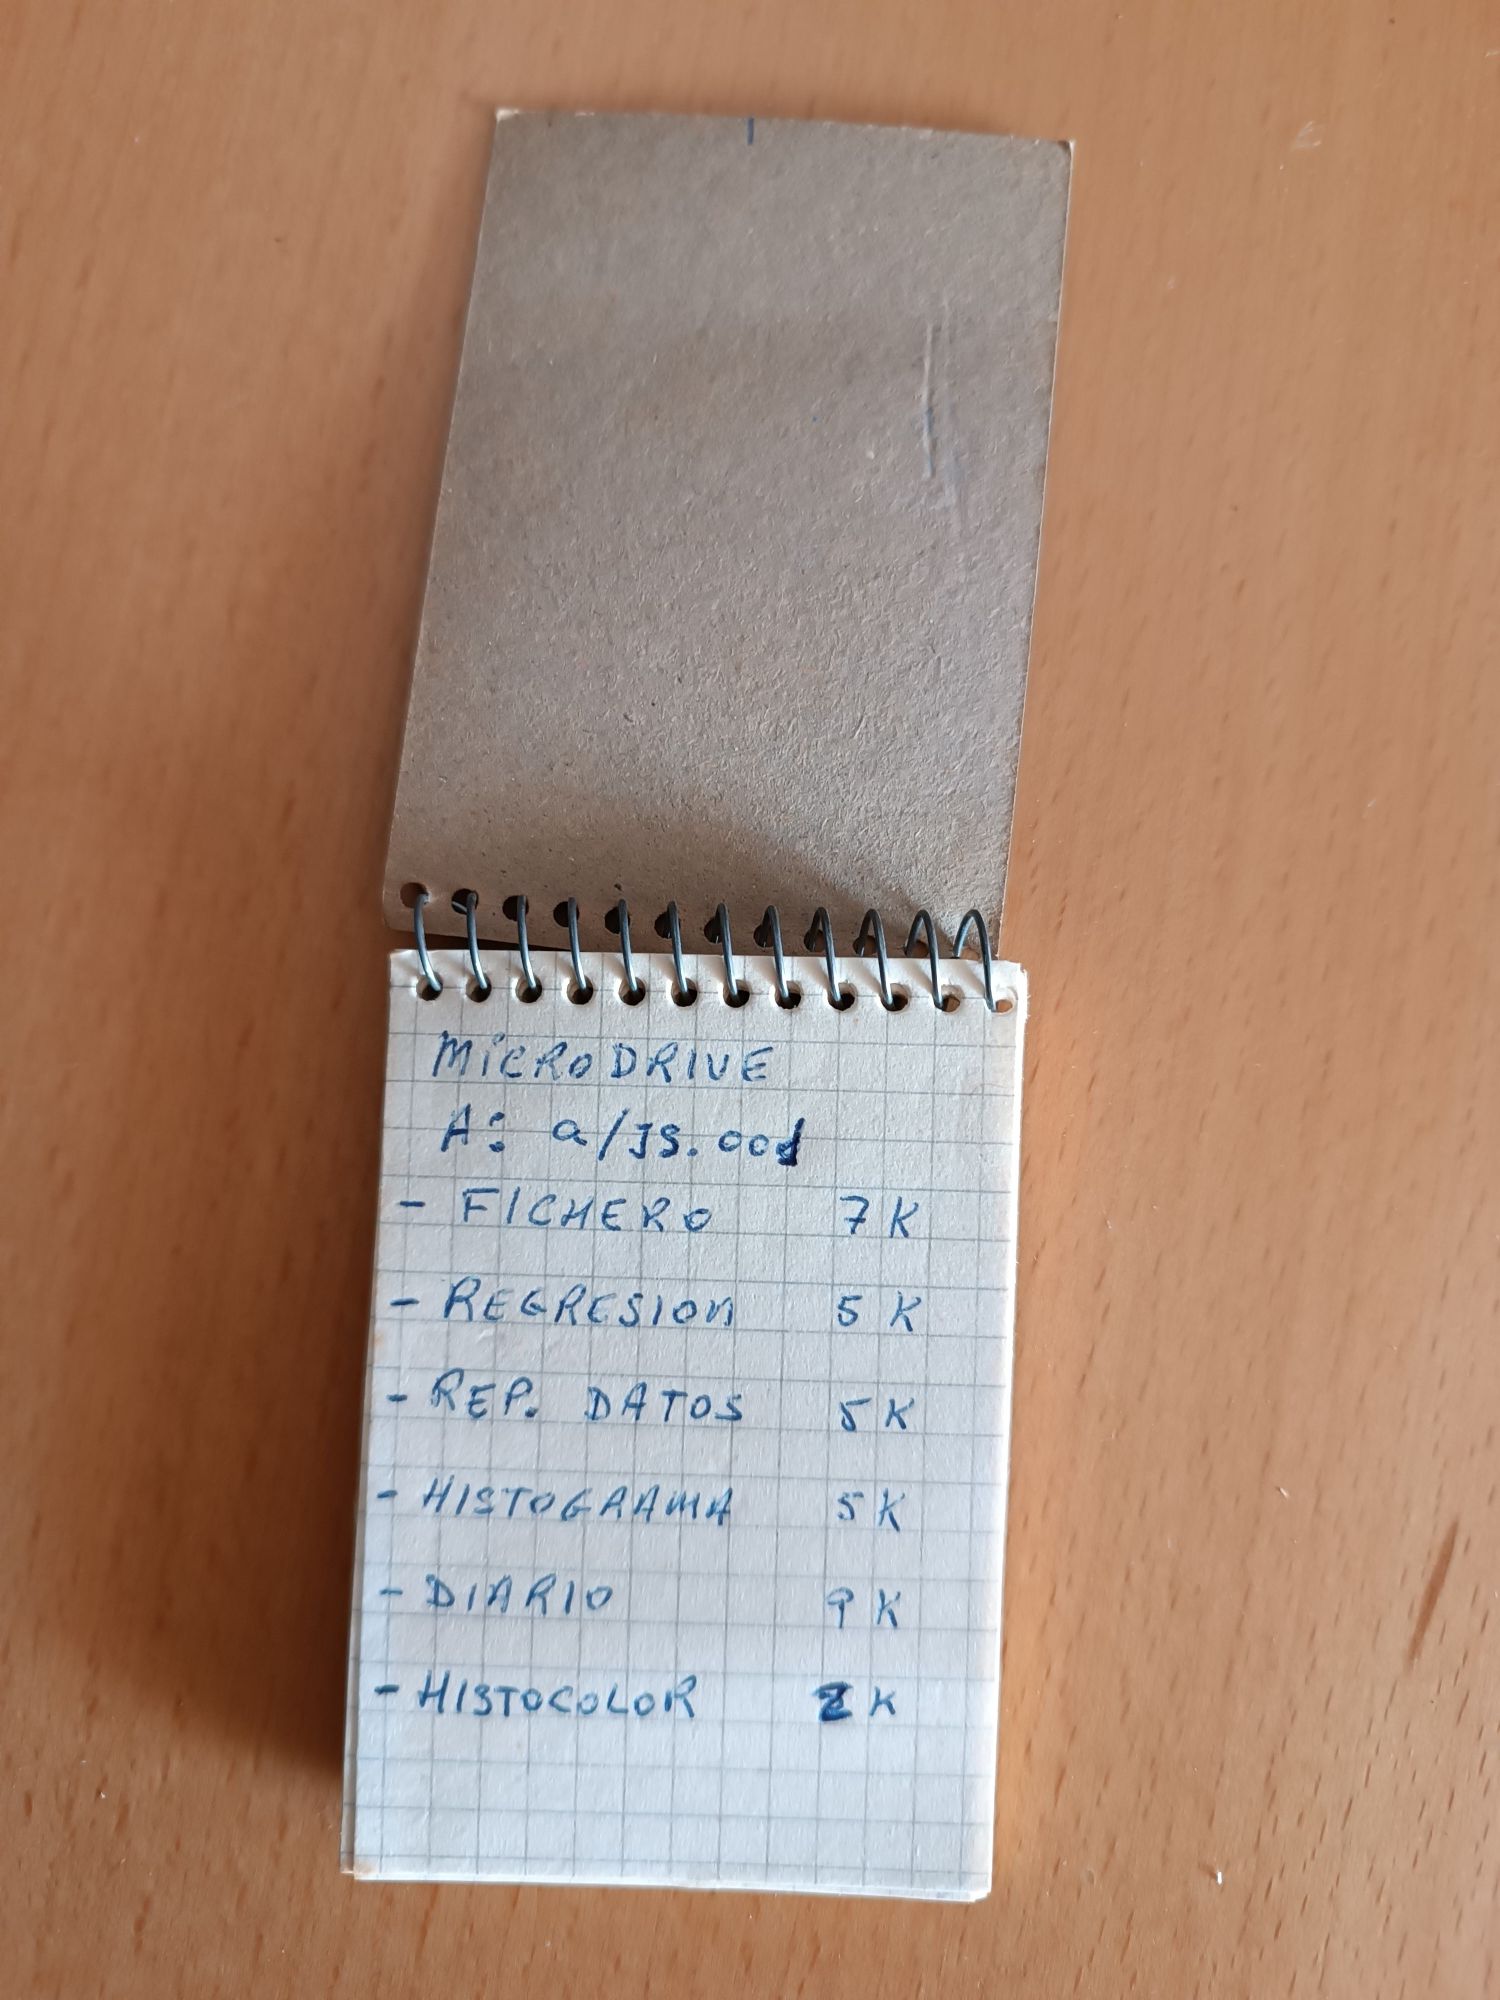 MICRODRIVE
A: a/JS.001
- FICHERO 7 K
- REGRESION 5 K
- REP. DATOS 5 K
- HISTOGRAMA 5 K
- DIARIO 9 K
- HISTOCOLOR 2 K